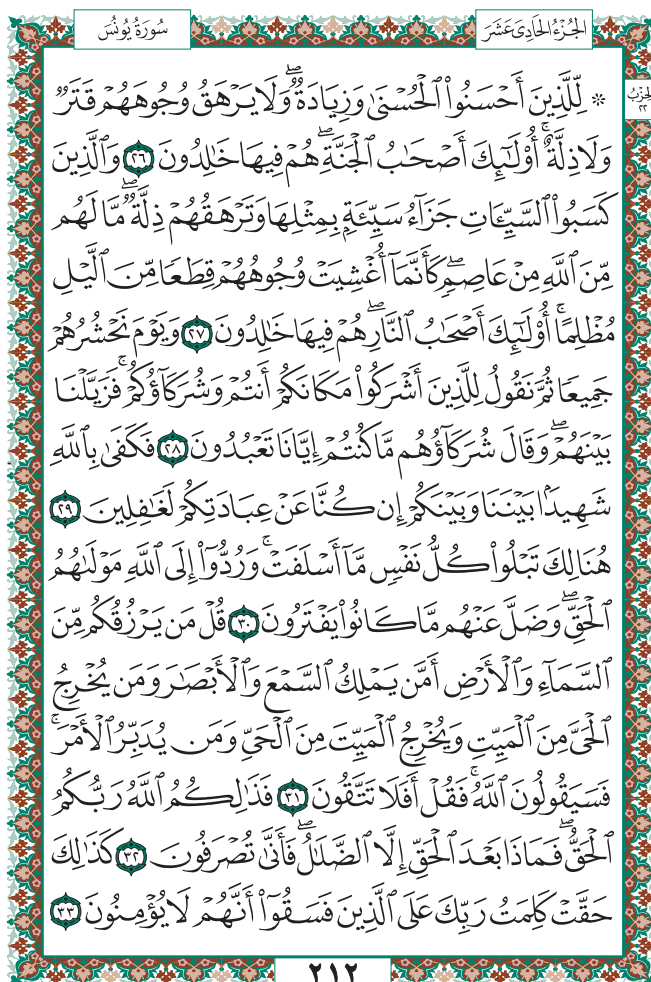 الجُزْءُ الحَادِي عَشَرَ
سُورَةُ يُونُسَ
الحِزْبُ
٢٢
۞ لِّلَّذِينَ أَحْسَنُوا۟ ٱلْحُسْنَىٰ وَزِيَادَةٌۖ وَلَا يَرْهَقُ وُجُوهَهُمْ قَتَرٌ
وَلَا ذِلَّةٌۚ أُو۟لَٰٓئِكَ أَصْحَٰبُ ٱلْجَنَّةِۖ هُمْ فِيهَا خَٰلِدُونَ ٢٦ وَٱلَّذِينَ
كَسَبُوا۟ ٱلسَّيِّـَٔاتِ جَزَآءُ سَيِّئَةِۭ بِمِثْلِهَا وَتَرْهَقُهُمْ ذِلَّةٌۖ مَّا لَهُم
مِّنَ ٱللَّهِ مِنْ عَاصِمٍۖ كَأَنَّمَآ أُغْشِيَتْ وُجُوهُهُمْ قِطَعًا مِّنَ ٱلَّيْلِ
مُظْلِمًاۚ أُو۟لَٰٓئِكَ أَصْحَٰبُ ٱلنَّارِۖ هُمْ فِيهَا خَٰلِدُونَ ٢٧ وَيَوْمَ نَحْشُرُهُمْ
جَمِيعًا ثُمَّ نَقُولُ لِلَّذِينَ أَشْرَكُوا۟ مَكَانَكُمْ أَنتُمْ وَشُرَكَآؤُكُمْۚ فَزَيَّلْنَا
بَيْنَهُمْۖ وَقَالَ شُرَكَآؤُهُم مَّا كُنتُمْ إِيَّانَا تَعْبُدُونَ ٢٨ فَكَفَىٰ بِٱللَّهِ
شَهِيدًۢا بَيْنَنَا وَبَيْنَكُمْ إِن كُنَّا عَنْ عِبَادَتِكُمْ لَغَٰفِلِينَ ٢٩
هُنَالِكَ تَبْلُوا۟ كُلُّ نَفْسٍ مَّآ أَسْلَفَتْۚ وَرُدُّوٓا۟ إِلَى ٱللَّهِ مَوْلَىٰهُمُ
ٱلْحَقِّۖ وَضَلَّ عَنْهُم مَّا كَانُوا۟ يَفْتَرُونَ ٣٠ قُلْ مَن يَرْزُقُكُم مِّنَ
ٱلسَّمَآءِ وَٱلْأَرْضِ أَمَّن يَمْلِكُ ٱلسَّمْعَ وَٱلْأَبْصَٰرَ وَمَن يُخْرِجُ
ٱلْحَىَّ مِنَ ٱلْمَيِّتِ وَيُخْرِجُ ٱلْمَيِّتَ مِنَ ٱلْحَىِّ وَمَن يُدَبِّرُ ٱلْأَمْرَۚ
فَسَيَقُولُونَ ٱللَّهُۚ فَقُلْ أَفَلَا تَتَّقُونَ ٣١ فَذَٰلِكُمُ ٱللَّهُ رَبُّكُمُ
ٱلْحَقُّۖ فَمَاذَا بَعْدَ ٱلْحَقِّ إِلَّا ٱلضَّلَٰلُۖ فَأَنَّىٰ تُصْرَفُونَ ٣٢ كَذَٰلِكَ
حَقَّتْ كَلِمَتُ رَبِّكَ عَلَى ٱلَّذِينَ فَسَقُوٓا۟ أَنَّهُمْ لَا يُؤْمِنُونَ ٣٣
٢١٢